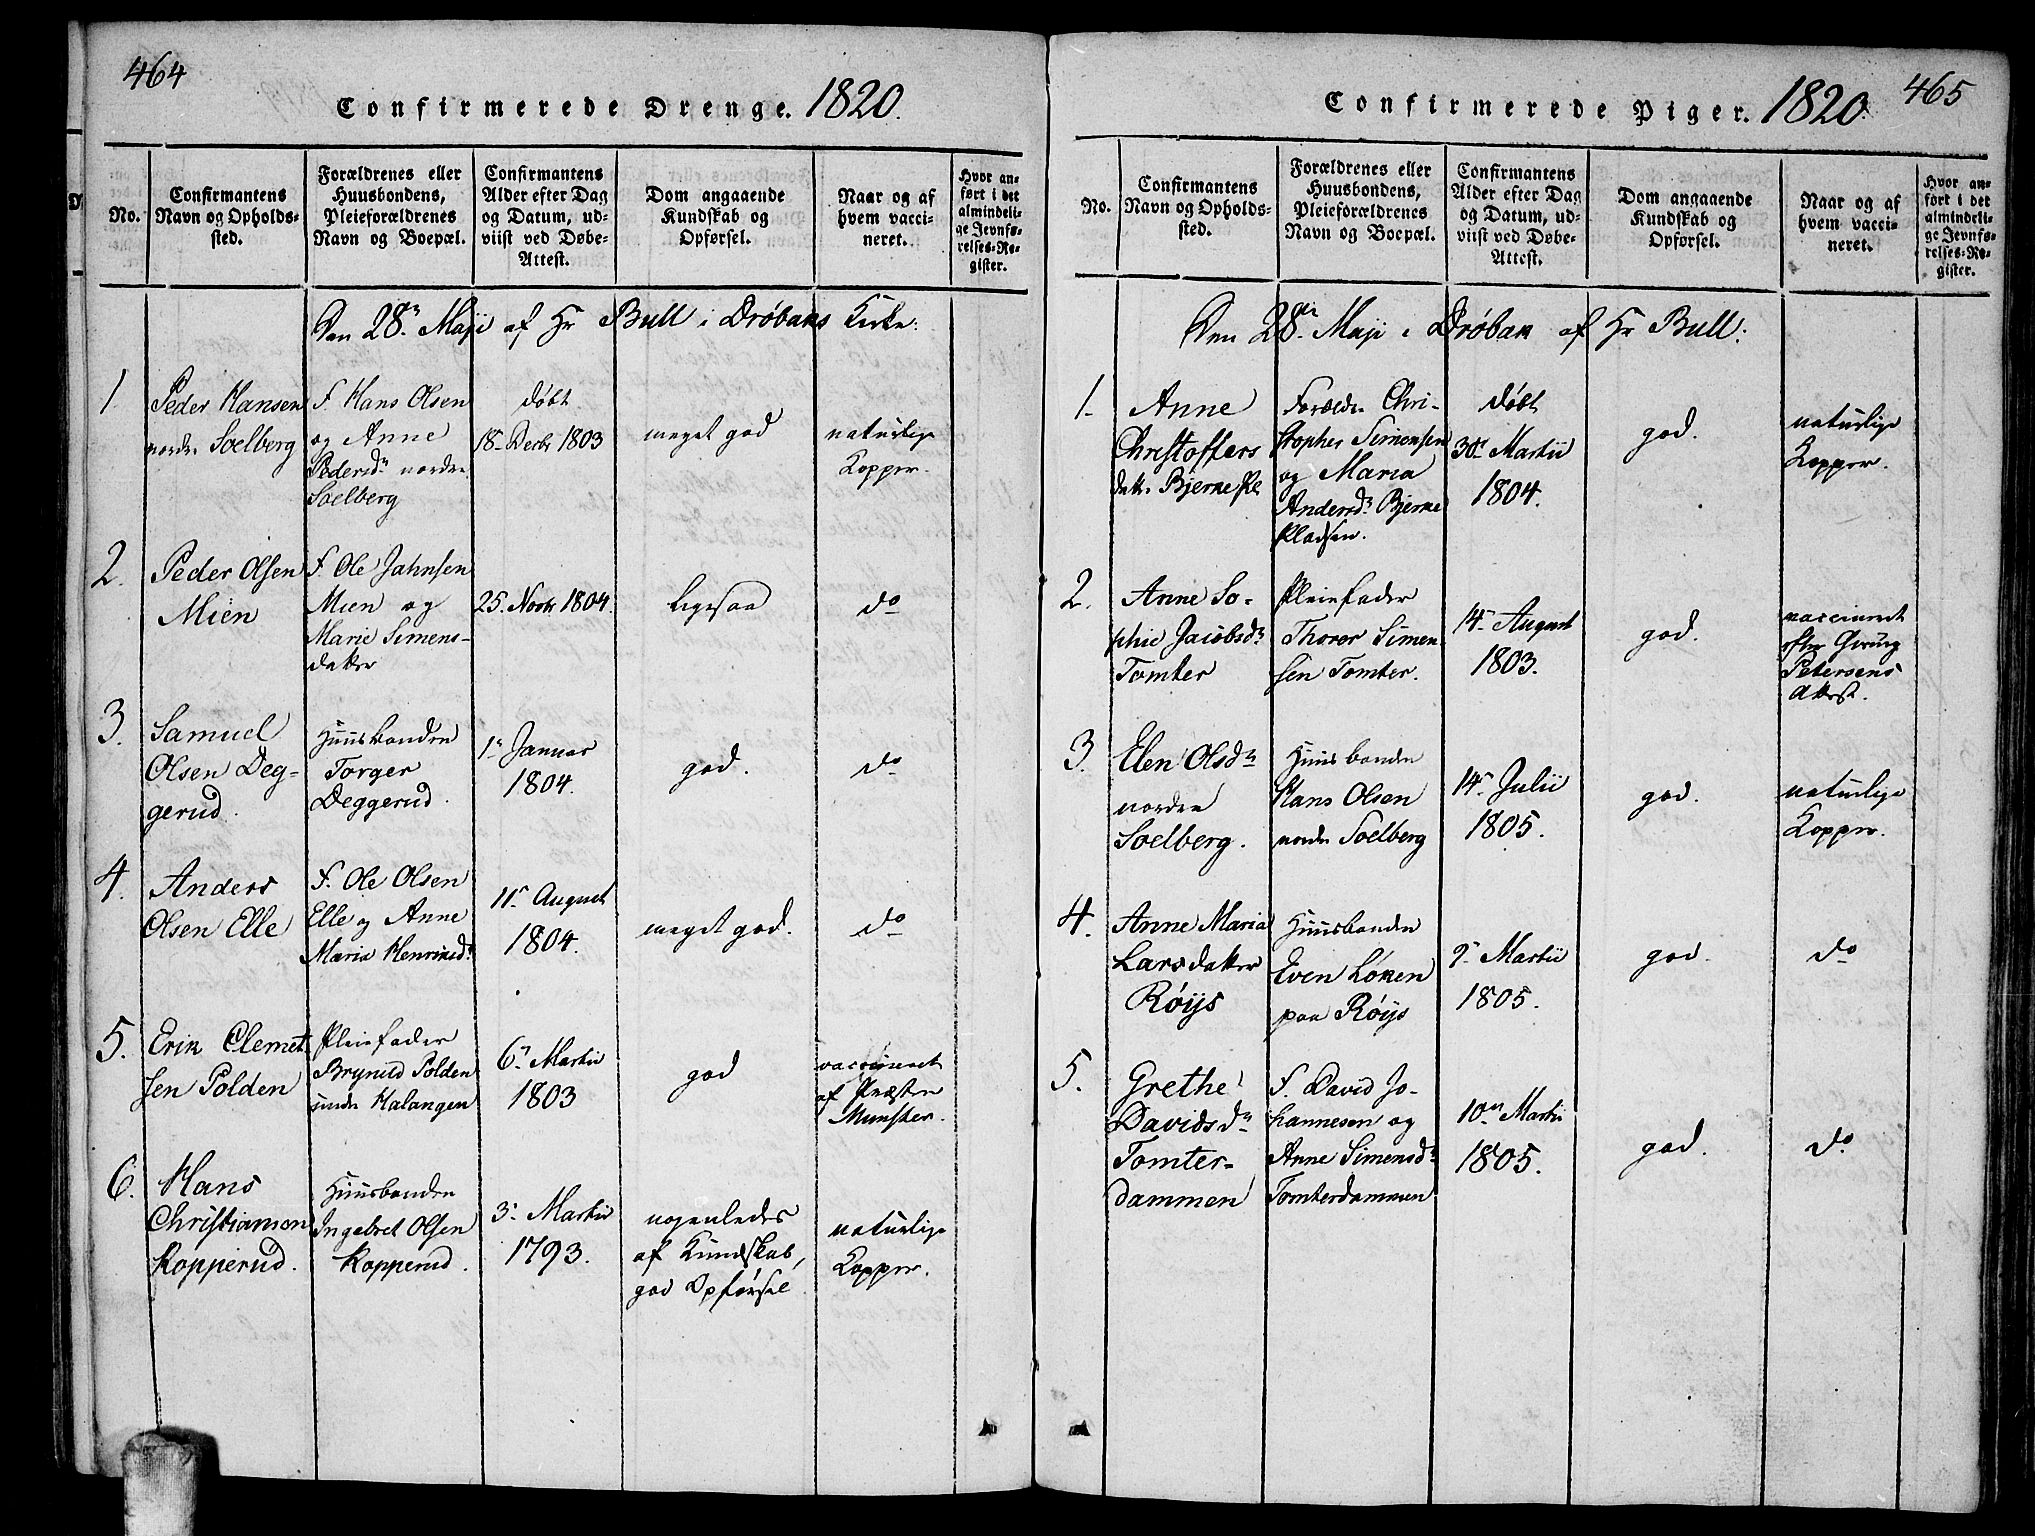 464
Confirmerede Drenge. 1820.
No.
Confirmantens
Navn og Opholds-
sted.
Forældrenes eller
Huusbondens,
Pleieforældrenes
Navn og Boepæl.
Confirmantens
Alder efter Dag
og Datum, ud-
viist ved Døbe-
Attest.
Dom angaaende
Kundskab og
Opførsel.
Naar og af
hvem vacci-
neret.
Hvor an-
ført i det
almindeli-
ge Jevnfø-
relses-Re-
gister.
Den 28n Maji af Hr Bull i Drøbaks Kirke:
1.
Peder Hansen
nordre Soelberg
F. Hans Olsen
og Anne
Pedersdr nordre
Soelberg
døbt
18 Decbr 1803
meget god
naturlige
Kopper.
2.
Peder Olsen
Mien
F. Ole Jahnsen
Mien og
Marie Simens-
datter
25. Novbr 1804.
ligesaa
do
3.
Samuel
Olsen Deg-
gerud.
Huusbonden
Torger
Deggerud.
1n Januar
1804.
god.
do
4.
Anders
Olsen Elle
F. Ole Olsen
Elle og Anne
Maria Henriksdr
11n August
1804.
meget god.
do
5.
Erik Clemet
sen Polden
Pleiefader
Brynild Polden
søndre Halangen
6n Martii
1803
god
vaccineret
af Præsten
Munster.
6.
Hans
Christiansen
Kopperud.
Huusbonden
Ingebret Olsen
Kopperud.
3n Martii
1793.
nogenledes
af Kundskab,
god Opførsel.
naturlige
Kopper.
465
Confirmerede Piger. 1820.
No.
Confirmantens
Navn og Opholds-
sted.
Forældrenes eller
Huusbondens,
Pleieforældrenes
Navn og Boepæl.
Confirmantens
Alder efter Dag
og Datum, ud-
viist ved Døbe-
Attest.
Dom angaaende
Kundskab og
Opførsel.
Naar og af
hvem vacci-
neret.
Hvor an-
ført i det
almindeli-
ge Jevnfø-
relses-Re-
gister.
Den 28de Maji i Drøbak af Hr Bull:
1.
Anne
Christoffers
datter Bjerke Pl
Foræld. Chri-
stopher Simensen
og Maria
Andersdr Bjerke
Pladsen.
døbt
30n Martii
1804.
god.
naturlige
Kopper.
2.
Anne So-
phie Jacobsdr
Tomter
Pleiefader
Thorer Simen
sen Tomter.
14n August
1803.
god.
vaccineret
efter
Petersens
Attest.
3.
Elen Olsdr
nordre
Soelberg.
Huusbonden
Hans Olsen
nordre Soelberg
14n Julii
1805.
god.
naturlige
Kopper.
4.
Anne Maria
Larsdatter
Røijs
Huusbonden
Even Løken
paa Røijs
9n Martii
1805.
god.
do
5.
Grethe
Davidsdr
Tomter-
dammen
F. David Jo-
hannesen og
Anne Simensdr
Tomterdammen
10n Martii
1805.
god.
do.